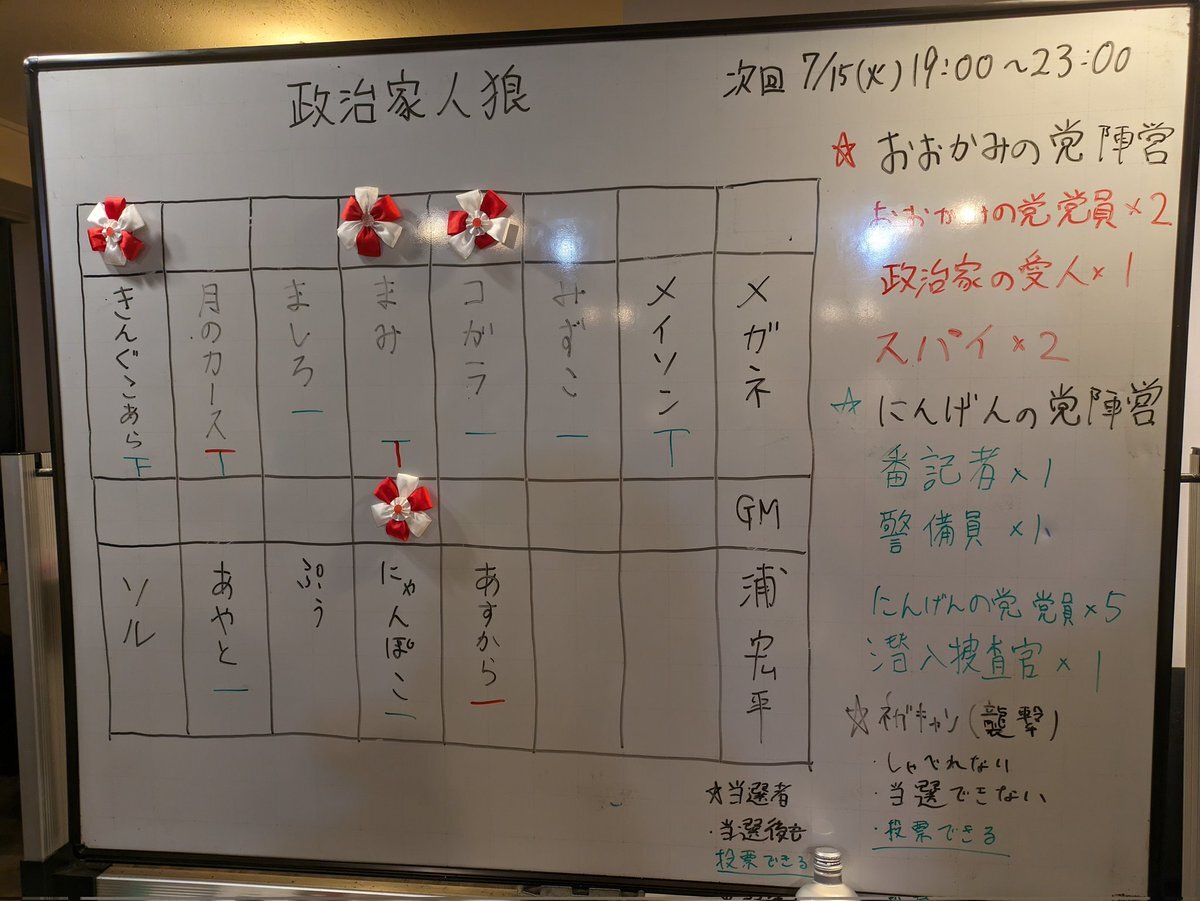 政治家人狼
次回 7/15(火) 19:00～23:00
メガネ
メイソン
みずこ
コガラ
まみ
ましろ
月のカース
きんぐこあら
GM
浦 宏平
あすから
にゃんぽこ
ぷぅ
あやと
ソル
☆ おおかみの党 陣営
おおかみの党党員×2
政治家の愛人×1
スパイ×2
☆ にんげんの党 陣営
番記者×1
警備員×1
にんげんの党 党員×5
潜入捜査官×1
☆ ネガキャン(襲撃)
・しゃべれない
・当選できない
・投票できる
☆当選者
・当選後も
投票できる